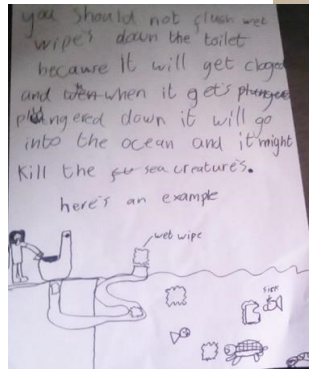 you should not flush wet
wipe's down the toilet
because it will get cloged
and when it get's
plungered down it will go
into the ocean and it might
kill the sea creature's.
here's an example
wet wipe